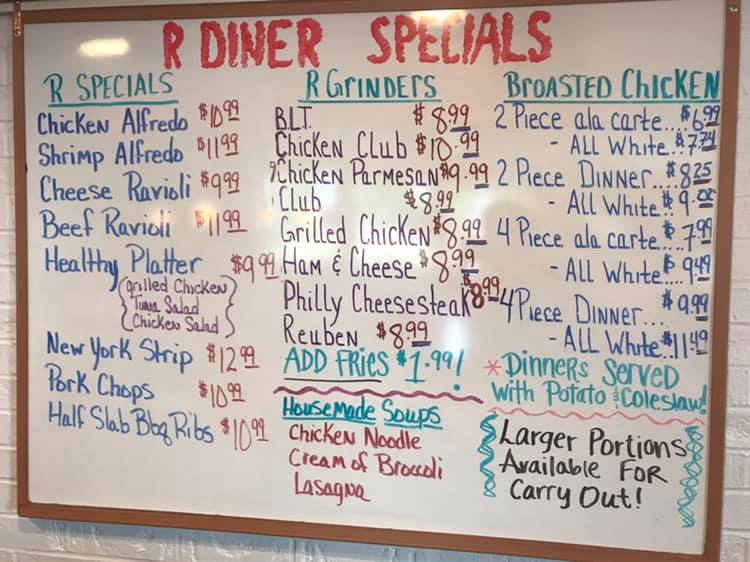 R DINER SPECIALS
R SPECIALS
Chicken Alfredo $10.99
Shrimp Alfredo $11.99
Cheese Ravioli $9.99
Beef Ravioli $11.99
Healthy Platter $9.99
(grilled Chicken)
Tuna Salad
Chicken Salad
New York Strip $12.99
Pork Chops $10.99
Half Slab Bbq Ribs $10.99
R GRINDERS
B.L.T. $8.99
Chicken Club $10.99
Chicken Parmesan $9.99
Club $8.99
Grilled Chicken $8.99
Ham & Cheese $8.99
Philly Cheesesteak $8.99
Reuben $8.99
ADD FRIES $1.99!
Housemade Soups
Chicken Noodle
Cream of Broccoli
Lasagna
BROASTED CHICKEN
2 Piece ala carte...$6.99
- ALL White $7.74
2 Piece Dinner...$8.25
- ALL White $9.00
4 Piece ala carte...$7.99
- ALL White $9.49
4 Piece Dinner... $9.99
- ALL White $11.49
*Dinners Served
with Potato & Coleslaw!
Larger Portions
Available For
Carry Out!